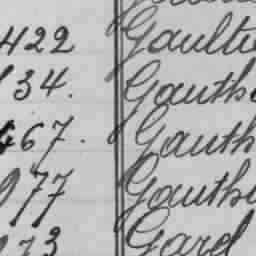 422 Gaulti
34. Gauth
467. Gauth
977 Gauthi
73 Gard